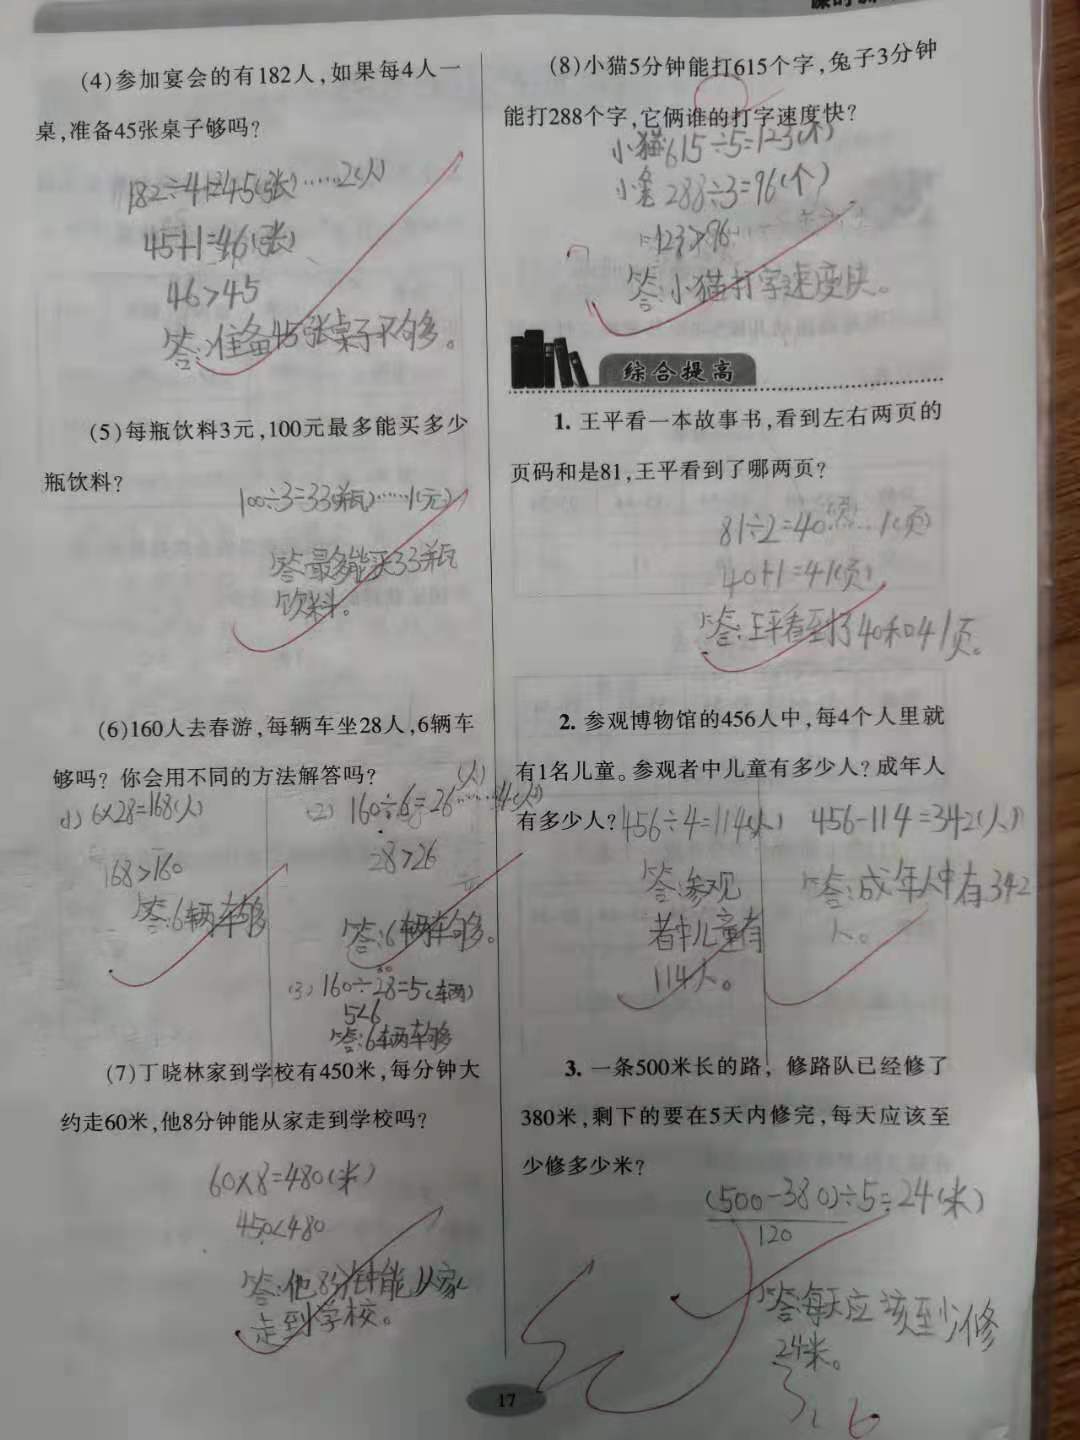 (4)参加宴会的有182人,如果每4人一
桌,准备45张桌子够吗?
182÷4=45(张)……2(人)
45+1=46(张)
46>45
答:准备45张桌子不够。
(5)每瓶饮料3元,100元最多能买多少
瓶饮料?
100÷3=33(瓶)……1(元)
答:最多能买33瓶
饮料。
(6)160人去春游,每辆车坐28人,6辆车
够吗?你会用不同的方法解答吗?
(1)6×28=168(人)
168>160
答:6辆车够
(2)160÷6=26(人)……4(人)
28>26
答:6辆车够。
(3)160÷28≈5(车两)
5<6
答:6辆车够
(7)丁晓林家到学校有450米,每分钟大
约走60米,他8分钟能从家走到学校吗?
60×8=480(米)
450<480
答:他8分钟能从家
走到学校。
(8)小猫5分钟能打615个字,兔子3分钟
能打288个字,它俩谁的打字速度快?
小猫615÷5=123(个)
小兔288÷3=96(个)
123>96
答:小猫打字速度快。
综合提高
1. 王平看一本故事书,看到左右两页的
页码和是81,王平看到了哪两页?
81÷2=40(页)……1(页)
40+1=41(页)
答:王平看到了40和41页。
2. 参观博物馆的456人中,每4个人里就
有1名儿童。参观者中儿童有多少人?成年人
有多少人?
456÷4=114(人) 456-114=342(人)
答:参观
者中儿童有
114人。
答:成年人中有342
人。
3. 一条500米长的路,修路队已经修了
380米,剩下的要在5天内修完,每天应该至
少修多少米?
(500-380)÷5=24(米)
120
答:每天应该至少修
24米。
17